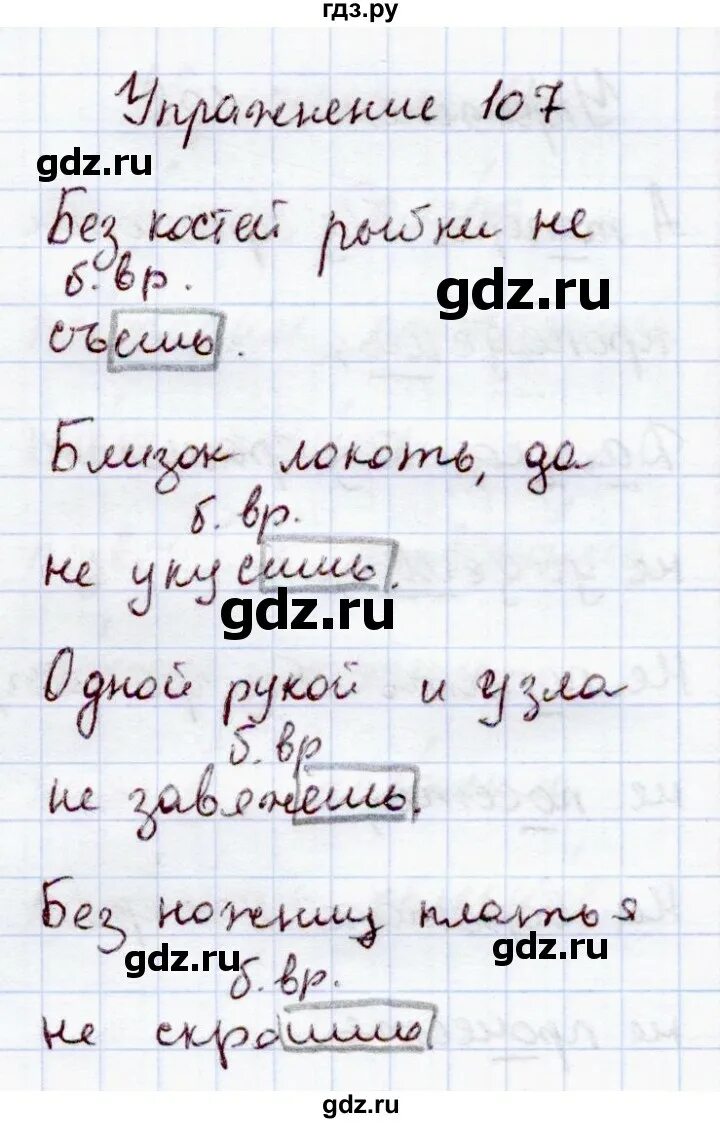 гдз.ру
Упражнение 107
gdz.ru
Без костей рыбки не
б. вр.
gdz.ru
съешь.
Близок локоть, да
б. вр.
не укусишь.
gdz.ru
Одной рукой и узла
б. вр
не завяжешь.
Без ножниц платья
gdz.ru
gdz.ru
б. вр.
не скроишь
gdz.ru